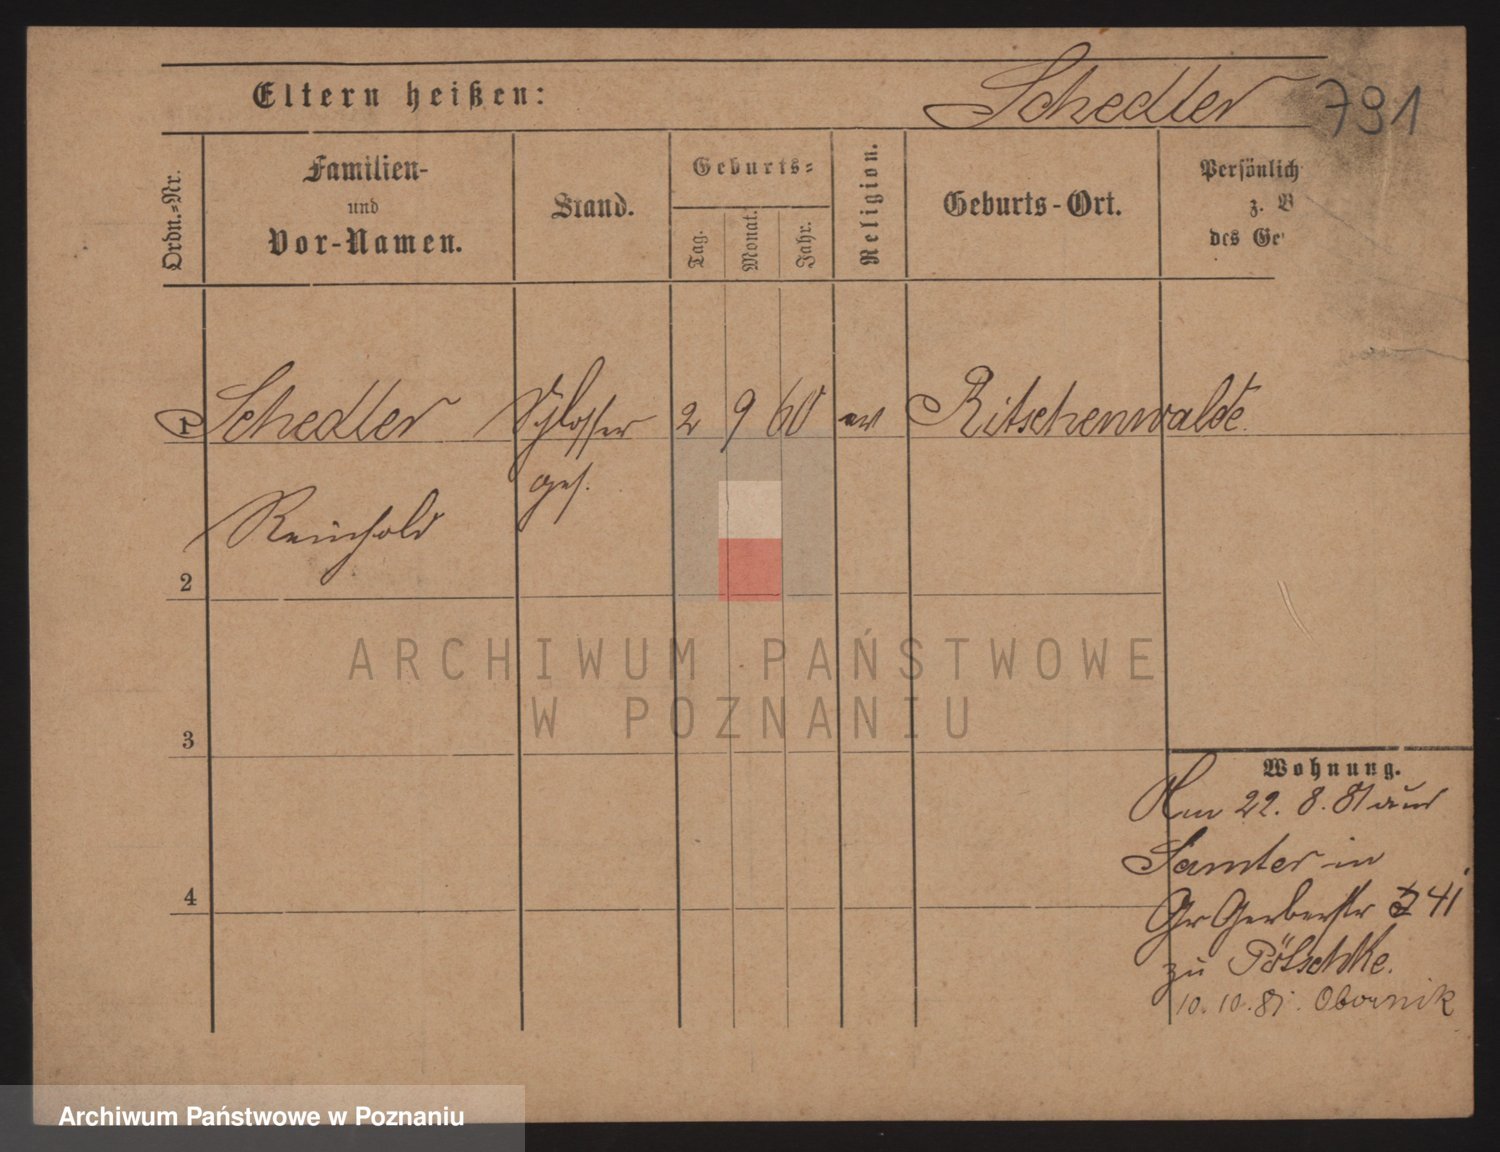 Schedler 791
Eltern heißen:
Ordn.-Nr.
Familien-
und
Vor-Namen.
Stand.
Geburts-
Tag.
Monat.
Jahr.
Religion.
Geburts-Ort.
Persönlich
z. V
des Ge
1 Schedler Schlosser 2 9 60 ev Ritschenwalde.
ges.
Reinhold
2
3
4
Wohnung.
Am 22. 8. 81 aus
Samter in
Gr Gerberstr 41
zu Pötschke.
10. 10. 81. Obornik
ARCHIWUM PAŃSTWOWE
W POZNANIU
Archiwum Państwowe w Poznaniu